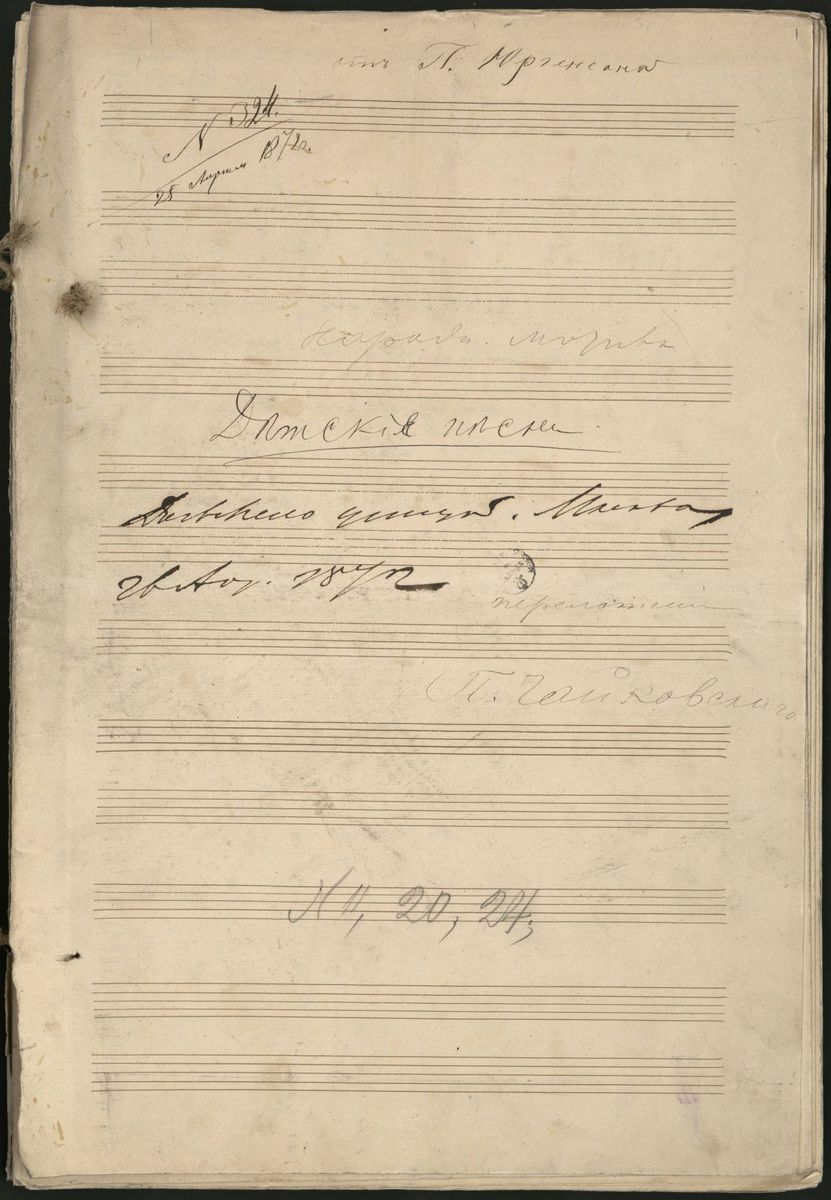 отъ П. Юргенсона
N 324.
25 Апрѣля 1872г.
народн. мотивы
Дѣтскія пѣсни
Дозволено цензурой. Москва,
26 Апр. 1872
переложеніе
П. Чайковскаго
N 11, 20, 24,